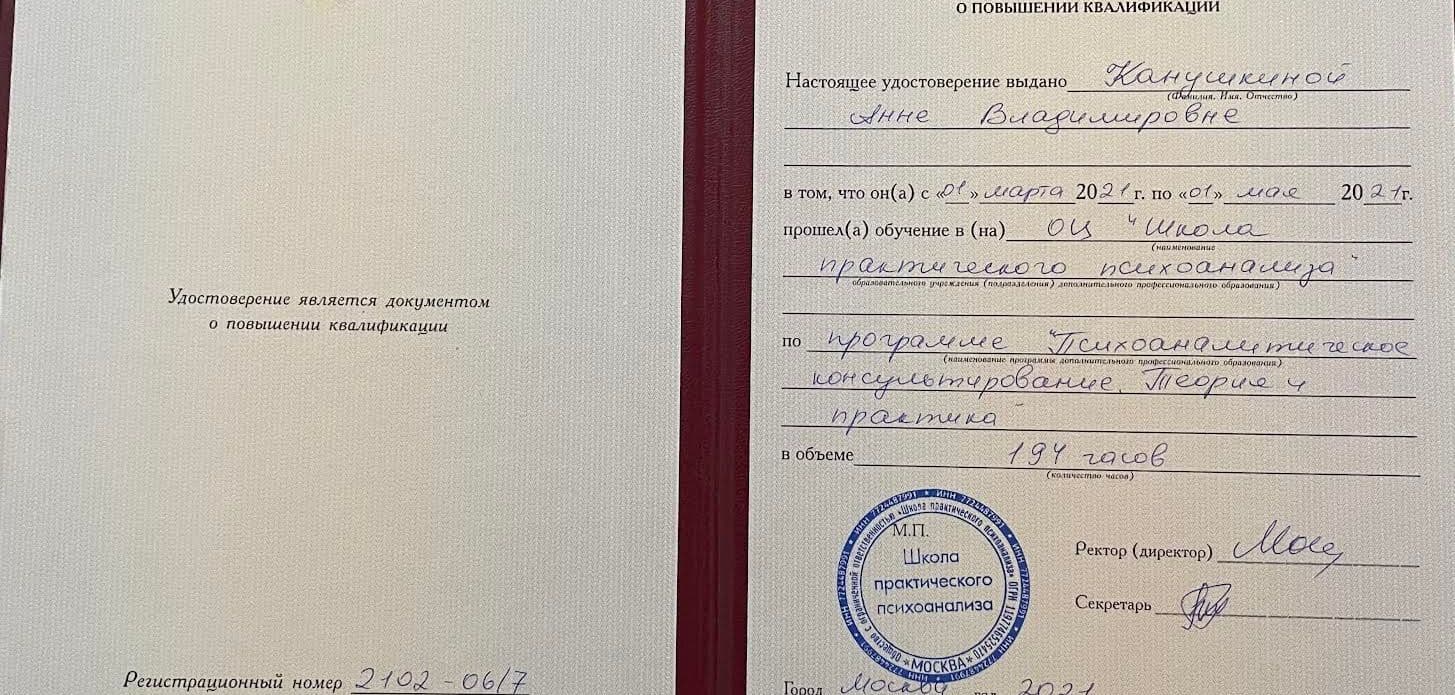 Удостоверение является документом
о повышении квалификации
Регистрационный номер 2102-06/7
О ПОВЫШЕНИИ КВАЛИФИКАЦИИ
Настоящее удостоверение выдано Канушкиной
(Фамилия. Имя. Отчество)
Анне Владимировне
в том, что он(а) с «01» марта 2021г. по «01» мая 2021г.
прошел(а) обучение в (на) ОЦ "Школа
(наименование
практического психоанализа"
образовательного учреждения (подразделения) дополнительного профессионального образования)
по программе "Психоаналитическое
(наименование программы дополнительного профессионального образования)
консультирование. Теория и
практика"
в объеме 194 часов
(количество часов)
М.П.
Школа
практического
психоанализа
Общество с ограниченной ответственностью «Школа практического психоанализа» ОГРН 1197746525470
*МОСКВА*
ИНН 7724487991 * ИНН 7724487991 * ИНН 7724487991 * ИНН 7724487991 * ИНН 7724487991
Ректор (директор)
Секретарь
Город Москва год 2021